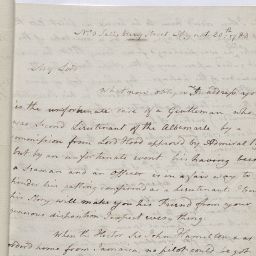 No 3 Salisbury Street August 20th 1783
My Lord
What now obliges me to address you
is the unfortunate case of a Gentleman, who
was Second Lieutenant of the Albemarle by a
commission from Lord Hood approved by Admiral
but by an unfortunate event his having been
a Seaman and an Officer is in a fair way to
hinder his getting confirmed a Lieutenant.
his Story will make you his Friend from your
generous disposition I expect every thing.
When the Hector Sir John Hamilton was
ordered home from Jamaica, no pilot could be got